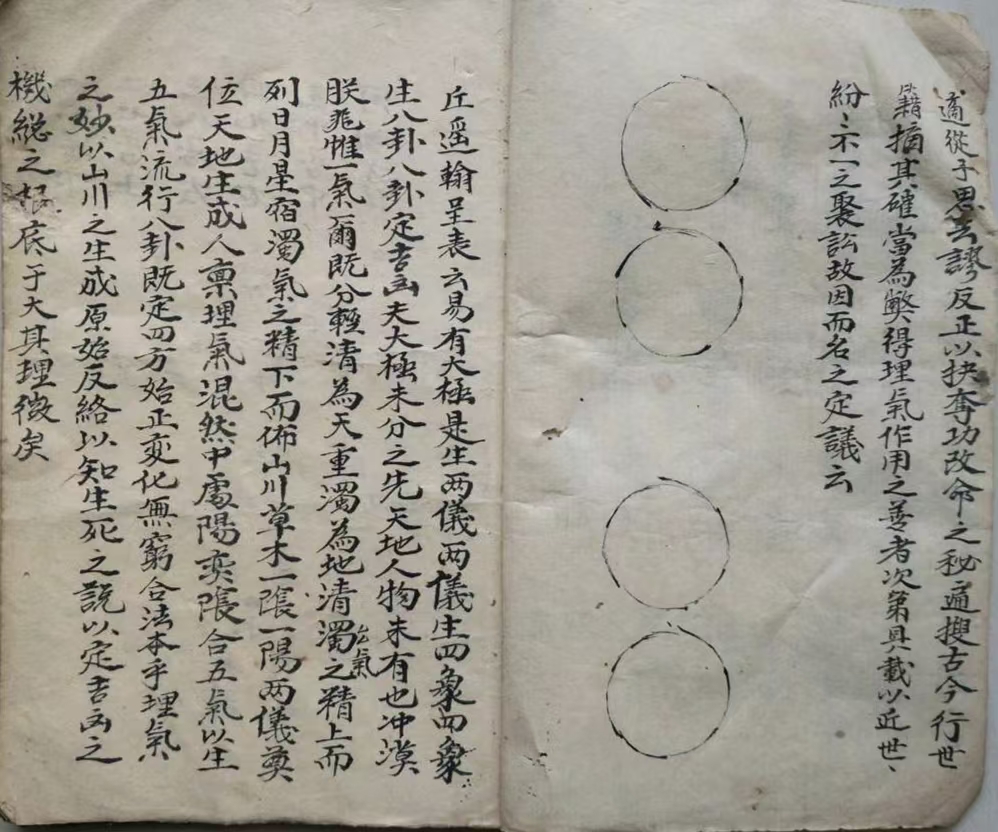 適從予思去謬反正以抉奪功改命之秘遍搜古今行世
籍摘其確當為獘得理氣作用之善者次第具載以近世
紛々不一之聚訟故因而名之定議云
丘遥翰呈表云易有大極是生两儀两儀生四象四象
生八卦八卦定吉凶夫大極未分之先天地人物未有也冲漠
朕兆惟一氣爾既分輕清為天重濁為地清濁之公氣精上而
列日月星宿濁氣之精下而佈山川草木一陰一陽两儀奠
位天地生成人禀理氣混然中處陽变陰合五氣以生
五氣流行八卦既定四方始正変化無窮合法本乎埋氣
之妙以山川之生成原始反終以知生死之說以定吉凶之
機総之根底于大其理微矣